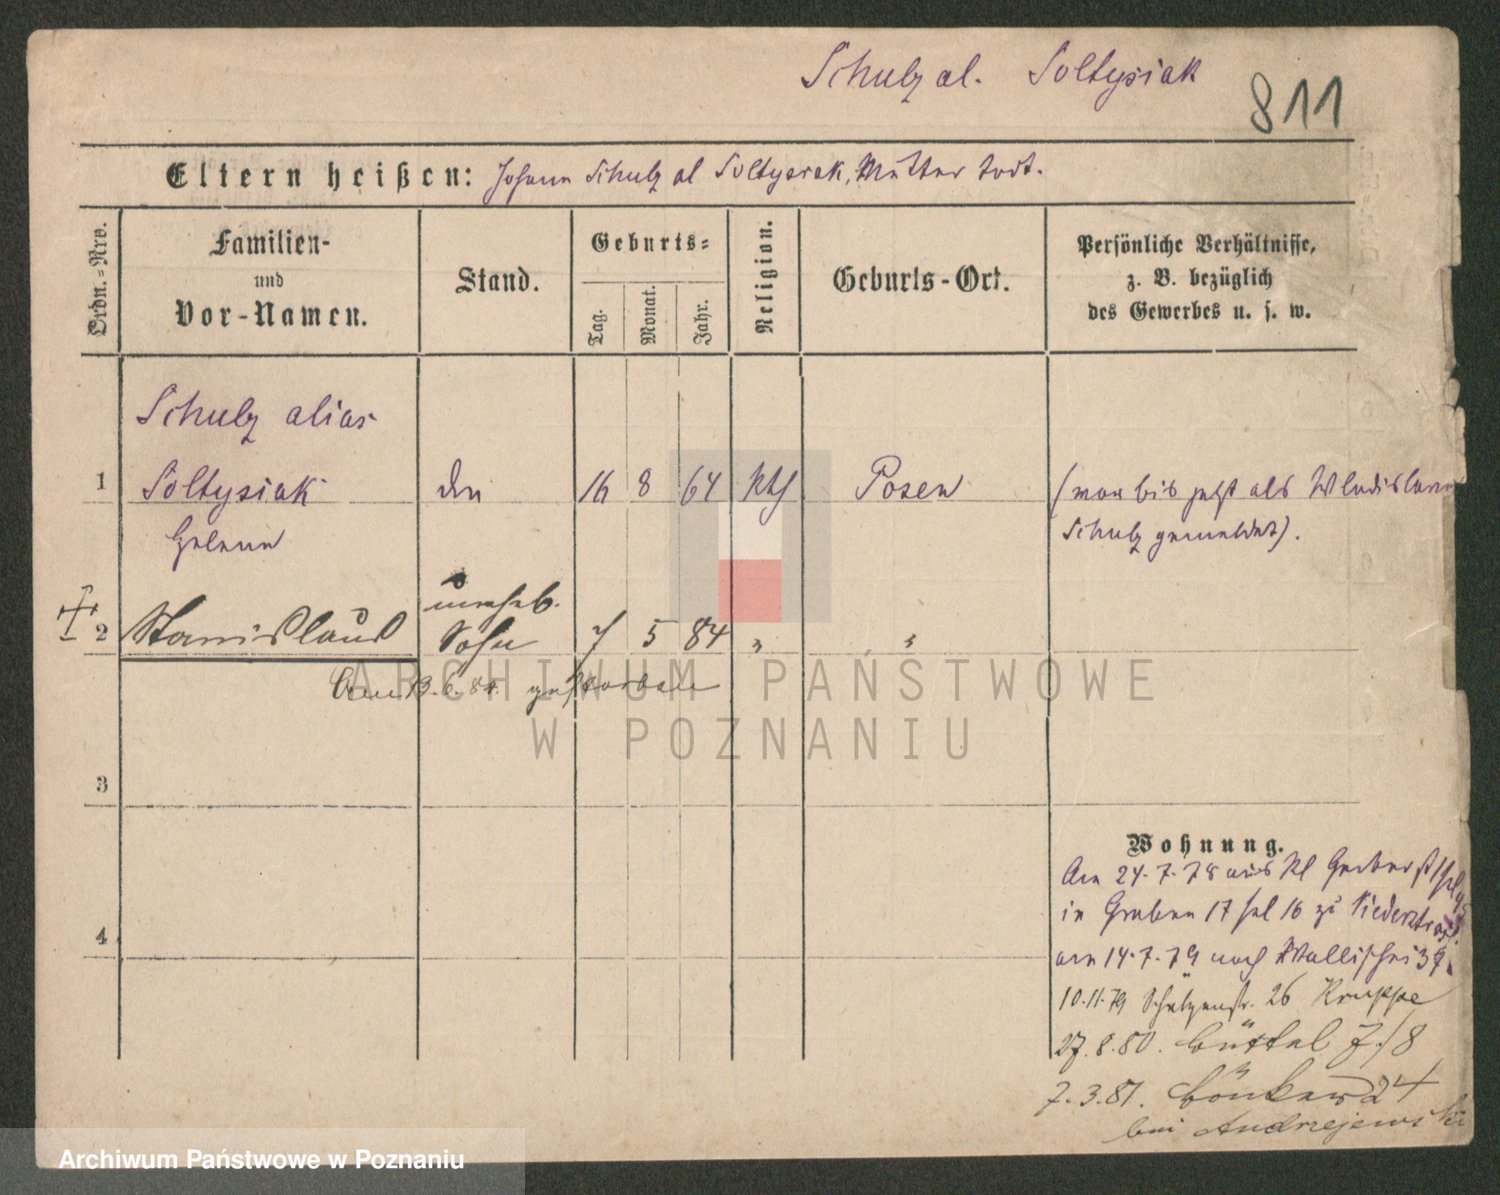 Schulz al. Soltysiak
811
Eltern heißen: Johann Schulz al Soltysiak, Mutter todt.
Ordn.-Nro.
Familien-
und
Vor-Namen.
Stand.
Geburts=
Tag.
Monat.
Jahr.
Religion.
Geburts-Ort.
Persönliche Verhältnisse,
z. B. bezüglich
des Gewerbes u. s. w.
Schulz alias
1 Soltysiak 16 8 64 kth Posen (war bis jetzt als Wladislawa
Helene
Schulz gemeldet).
unehel.
2 Stanislaus Sohn 7 5 84 " "
Am 13.6.84. gestorben
3
4
Wohnung.
Am 24.7.78 aus Kl Gerberst
in Graben 17 bei 16 zu
am 14.7.79 nach Wallischei
10.11.79 Schützenstr. 26 Kruppe
27.8.80. Büttel 7/8
7.3.81.
bei Andrzejewski
ARCHIWUM PAŃSTWOWE
W POZNANIU
Archiwum Państwowe w Poznaniu